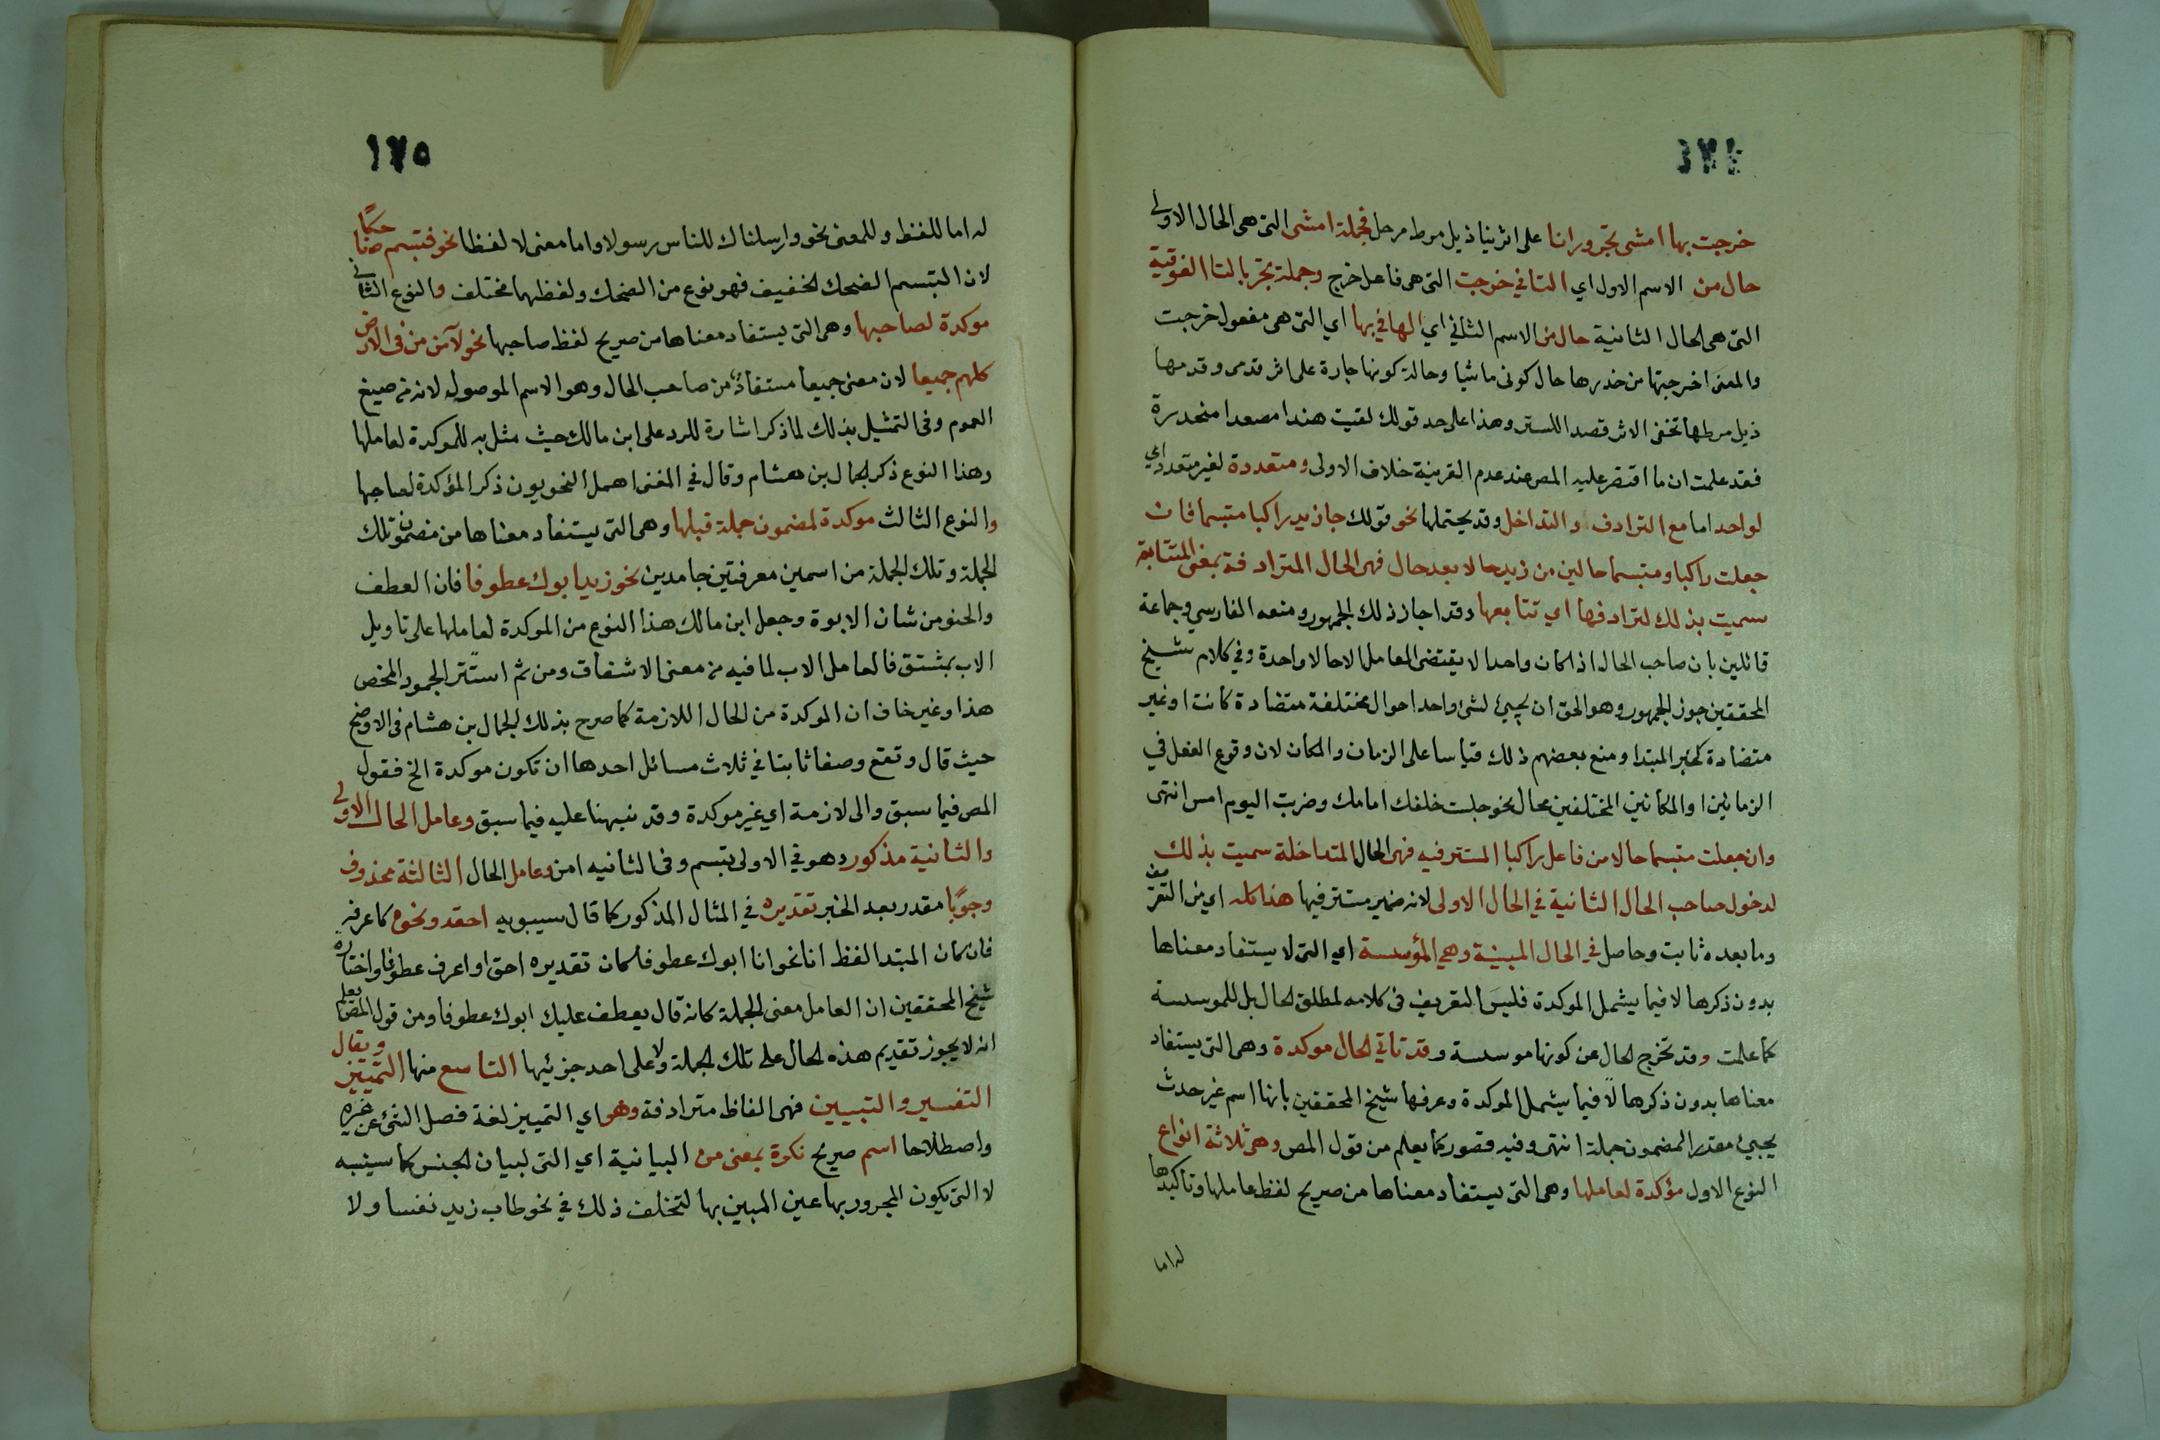 ١٧٤
خرجت بها امشى تجر ورانا على اثرينا ذيل مرط مرحل فجملة امشى التى هى الحال الاولى
حال من الاسم الاول اي التا في خرجت التى هى فاعل خرج وجملة تجر بالتا الفوقية
التى هى الحال الثانية حال من الاسم الثاني اي الها في بها اي التى هى مفعول خرجت
والمعنى اخرجتها من خدرها حال كونى ماشيا وحالة كونها جارة على اثر قدمى وقدمها
ذيل مرطها تخفى الاثر قصدا للستر وهذا على حد قولك لقيت هندا مصعدا منحدرة
فقد علمت ان ما اقتصر عليه المص عند عدم القرينة خلاف الاولى ومتعددة لغير متعدد اي
لواحد اما مع الترادف والتداخل وقد يحتملها نحو قولك جا زيد راكبا متبسما فان
جعلت راكبا ومتبسما حالين من زيد حالا بعد حال فهى الحال المترادفة بمعنى المتتابعة
سميت بذلك لترادفها اي تتابعها وقد اجاز ذلك الجمهور ومنعه الفارسي وجماعة
قائلين بان صاحب الحال اذا كان واحدا لا يقتضى العامل الا حالا واحدة وفي كلام شيخ
المحققين جوز الجمهور وهو الحق ان يجيئ لشئ واحد احوال مختلفة متضادة كانت او غير
متضادة كخبر المبتدا ومنع بعضهم ذلك قياسا على الزمان والمكان لان وقوع الفعل في
الزمانين او المكانين المختلفين محال نحو جلست خلفك امامك وضربت اليوم امس انتهى
وان جعلت متبسما حالا من فاعل راكبا المستتر فيه فهى الحال المتداخلة سميت بذلك
لدخول صاحب الحال الثانية في الحال الاولى لانه ضمير مستتر فيها هذا كله اي من التعريف
وما بعده ثابت وحاصل في الحال المبينة وهي المؤسسة اي التى لا يستفاد معناها
بدون ذكرها لا فيما يشمل الموكدة فليس التعريف فى كلامه لمطلق الحال بل للموسسة
كما علمت وقد تخرج الحال عن كونها موسسة وقد تاتي الحال موكدة وهى التى يستفاد
معناها بدون ذكرها لا فيما يشمل الموكدة وعرفها شيخ المحققين بانها اسم غير حدث
يجيئ مقدرا لمضمون جملة انتهى وفيه قصور كما يعلم من قول المص وهى ثلاثة انواع
النوع الاول مؤكدة لعاملها وهى التى يستفاد معناها من صريح لفظ عاملها وتاكيدها
له اما
١٧٥
له اما للفظ وللمعنى نحو وارسلناك للناس رسولا واما معنى لا لفظا نحو فتبسم ضاحكا
لان التبسم الضحك الخفيف فهو نوع من الضحك ولفظهما مختلف والنوع الثانى
موكدة لصاحبها وهى التى يستفاد معناها من صريح لفظ صاحبها نحو لآمن من فى الارض
كلهم جميعا لان معنى جميعا مستفاد من صاحب الحال وهو الاسم الموصول لانه من صيغ
العموم وفى التمثيل بذلك لما ذكر اشارة للرد على ابن مالك حيث مثل به للموكدة لعاملها
وهذا النوع ذكره الجمال بن هشام وقال في المغنى اهمل النحويون ذكر المؤكدة لصاحبها
والنوع الثالث موكدة لمضمون جملة قبلها وهى التى يستفاد معناها من مضمون تلك
الجملة وتلك الجملة من اسمين معرفتين جامدين نحو زيد ابوك عطوفا فان العطف
والحنو من شان الابوة وجعل ابن مالك هذا النوع من الموكدة لعاملها على تاويل
الاب بمشتق فالعامل الاب لما فيه من معنى الاشفاق ومن ثم اشتتر الجمود المحض
هذا وغير خاف ان الموكدة من الحال اللازمة كما صرح بذلك الجمال بن هشام فى الاوضح
حيث قال وتقع وصفا ثابتا في ثلاث مسائل احدها ان تكون موكدة الخ فقول
المص فيما سبق والى لازمة اي غير موكدة وقد نبهنا عليه فيما سبق وعامل الحال الاولى
والثانية مذكور وهو في الاولى تبسم وفى الثانيه امن وعامل الحال الثالثة محذوف
وجوبا مقدر بعد الخبر تقديره في المثال المذكور كما قال سيبويه احقه ونحوه كاعرفه
فان كان المبتدا لفظ انا نحو انا ابوك عطوفا كان تقديره احق او اعرف عطوفا واختاره
شيخ المحققين ان العامل معنى الجملة كانه قال يعطف عليك ابوك عطوفا ومن قول المص يعلم
انه لا يجوز تقديم هذه الحال على تلك الجملة ولا على احد جزئيها التاسع منها التمييز ويقال
التفسير والتبيين فهى الفاظ مترادفة وهو اي التمييز لغة فصل الشئ عن غيره
واصطلاحا اسم صريح نكرة بمعنى من البيانية اي التى لبيان الجنس كما سينبه
لا التى يكون المجرور بها عين المبين بها لتخلف ذلك في نحو طاب زيد نفسا ولا